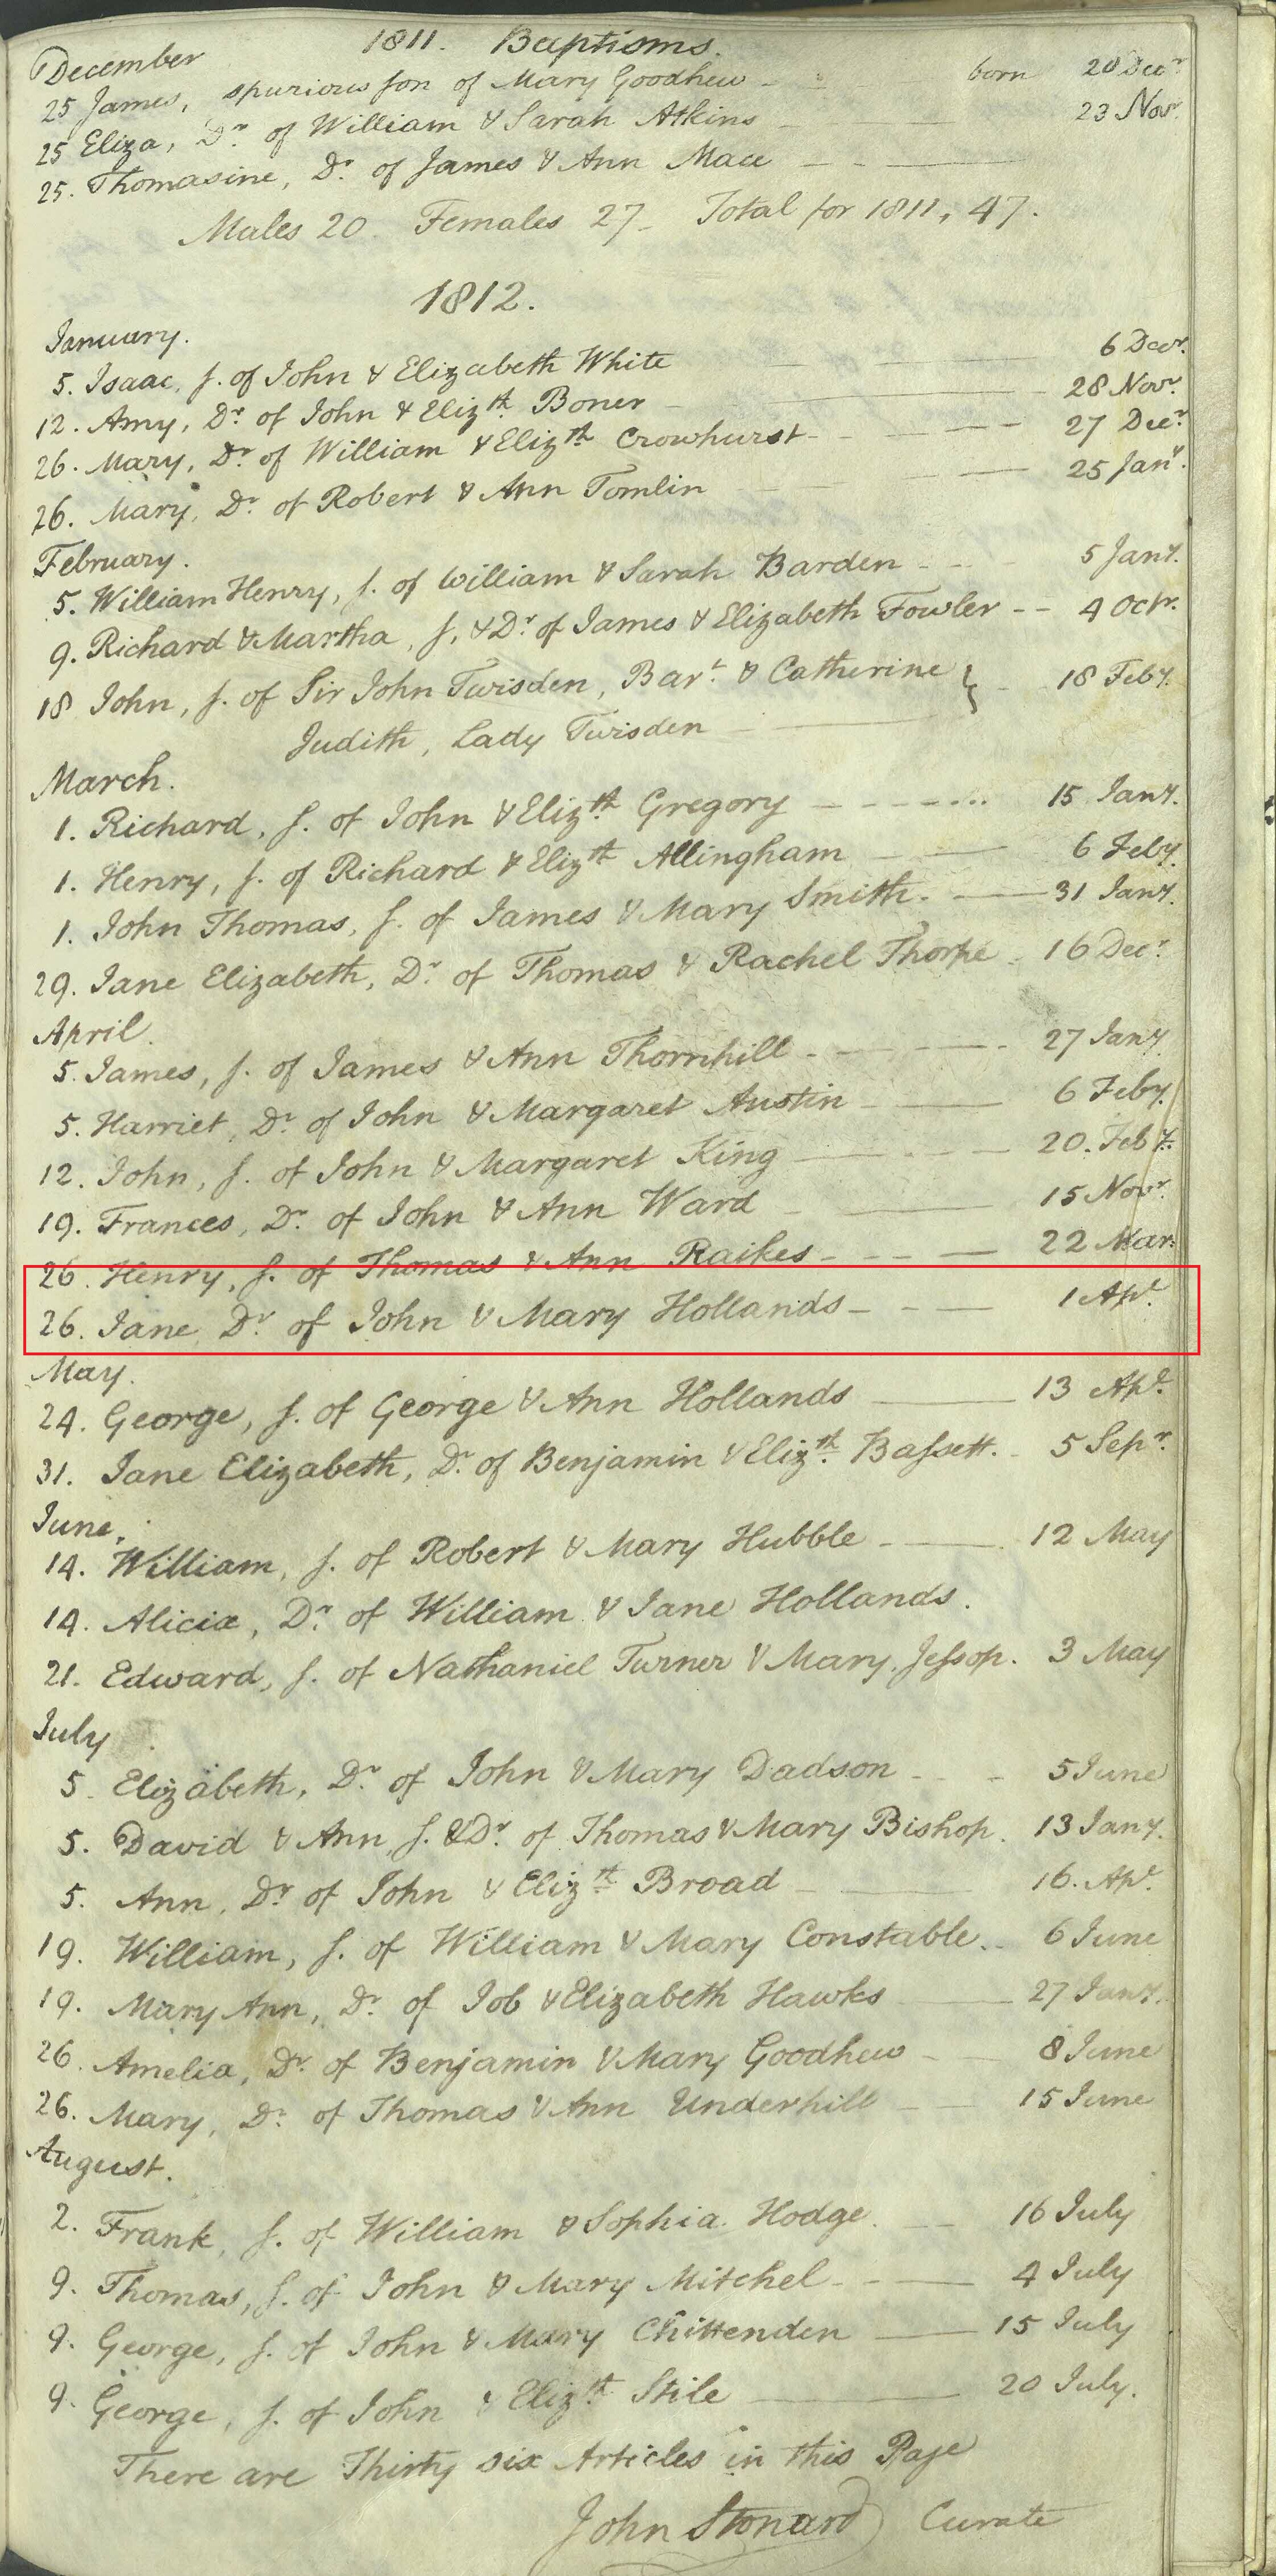 1811. Baptisms.
December
25 James, spurious son of Mary Goodhew - born 20 Decr.
25 Eliza, Dr. of William & Sarah Atkins 23 Novr.
25. Thomasine, Dr. of James & Ann Mace
Males 20 Females 27 - Total for 1811, 47.
1812.
January.
5. Isaac, s. of John & Elizabeth White 6 Decr.
12. Amy, Dr. of John & Elizth. Boner 28 Novr.
26. Mary, Dr. of William & Elizth. Crowhurst - 27 Decr.
26. Mary, Dr. of Robert & Ann Tomlin 25 Jany.
February.
5. William Henry, s. of William & Sarah Barden 5 Jany.
9. Richard & Martha, s. & Dr. of James & Elizabeth Fowler -- 4 Octr.
18 John, s. of Sir John Twisden, Bart. & Catherine } 18 Feby.
Judith, Lady Twisden
March.
1. Richard, s. of John & Elizth. Gregory 15 Jany.
1. Henry, s. of Richard & Elizth. Allingham 6 Feby.
1. John Thomas, s. of James & Mary Smith. 31 Jany.
29. Jane Elizabeth, Dr. of Thomas & Rachel Thorpe 16 Decr.
April.
5. James, s. of James & Ann Thornhill 27 Jany.
5. Harriet, Dr. of John & Margaret Austin 6 Feby.
12. John, s. of John & Margaret King 20. Feby.
19. Frances, Dr. of John & Ann Ward 15 Novr.
26. Henry, s. of Thomas & Ann Raikes - 22 Mar.
26. Jane, Dr. of John & Mary Hollands - 1 Apl.
May.
24. George, s. of George & Ann Hollands 13 Apl.
31. Jane Elizabeth, Dr. of Benjamin & Elizth. Bassett. 5 Sepr.
June.
14. William, s. of Robert & Mary Hubble 12 May
14. Alicia, Dr. of William & Jane Hollands.
21. Edward, s. of Nathaniel Turner & Mary Jessop. 3 May
July
5. Elizabeth, Dr. of John & Mary Dadson 5 June
5. David & Ann, s. & Dr. of Thomas & Mary Bishop. 13 Jany.
5. Ann, Dr. of John & Elizth. Broad 16. Apl.
19. William, s. of William & Mary Constable. 6 June
19. Mary Ann, Dr. of Job & Elizabeth Hawks 27 Jany.
26. Amelia, Dr. of Benjamin & Mary Goodhew 8 June
26. Mary, Dr. of Thomas & Ann Underhill 15 June
August.
2. Frank, s. of William & Sophia Hodge. 16 July
9. Thomas, s. of John & Mary Mitchel 4 July
9. George, s. of John & Mary Chittenden 15 July
9. George, s. of John & Elizth. Stile 20 July.
There are Thirty six Articles in this Page
John Stonard Curate